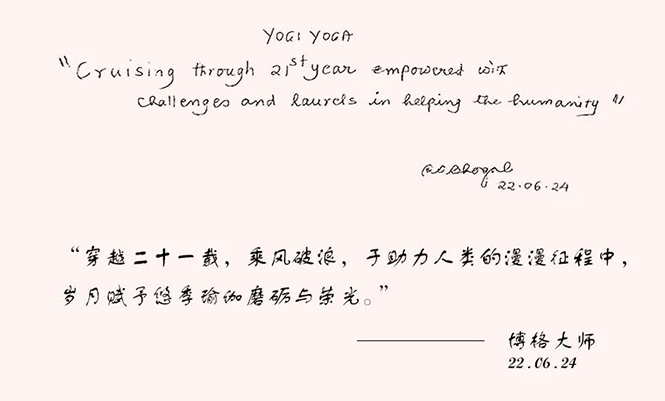 YOGI YOGA
"Cruising through 21st year empowered with
challenges and laurels in helping the humanity"
22.06.24
“穿越二十一载，乘风破浪，于助力人类的漫漫征程中，
岁月赋予悠季瑜伽磨砺与荣光。”
——— 博格大师
22.06.24